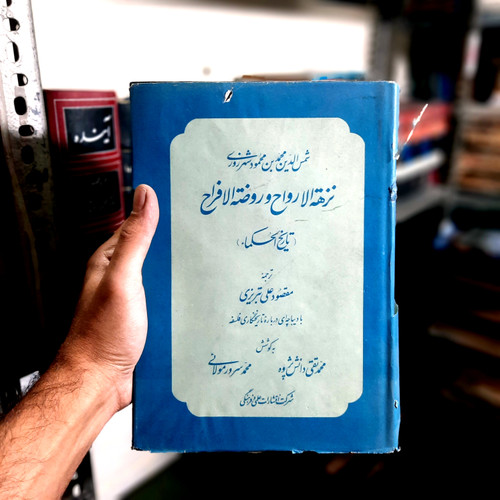 آینده
شمس‌الدین محمد بن محمود شهرزوری
نزهة الارواح و روضة الافراح
(تاریخ الحکماء)
ترجمهٔ
مقصود علی تبریزی
با دیباچه‌ای دربارهٔ تاریخنگاری فلسفه
به کوشش
محمد تقی دانش پژوه محمد سرور مولائی
شرکت انتشارات علمی و فرهنگی